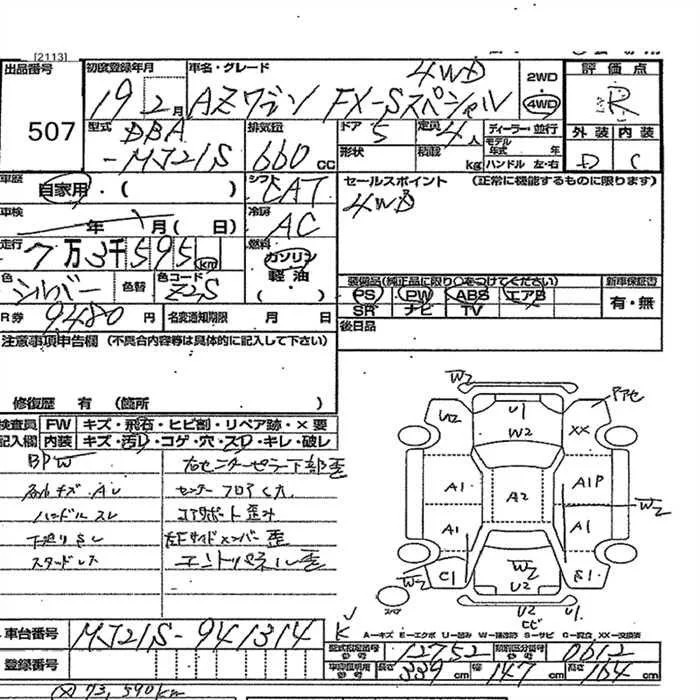 [2113]
出品番号 507
初度登録年月 19 2月
車名・グレード AZワゴン FX-Sスペシャル 4WD
2WD
4WD
評価点 R
外装 内装
D C
型式 DBA
-MJ21S
排気量 660 cc
ドア 5 定員 4人 ディーラー・並行
モデル年式 年
形状 積載 kg ハンドル 左・右
車歴 自家用・( )
シフト CAT
車検 年 月( 日)
冷房 AC
走行 7万3千595km
燃料 ガソリン
軽油
・( )
色 シルバー 色替 色コード Z2S
R券 9480円 名変通知期限 月 日
セールスポイント (正常に機能するものに限ります)
4WD
装備品(純正品に限り○をつけてください) 新車保証書
PS PW ABS エアB 有・無
SR ナビ TV
後日品
注意事項申告欄 (不具合内容等は具体的に記入して下さい)
修復歴 有 (箇所 )
検査員 FW キズ・飛石・ヒビ割・リペア跡・×要
記入欄 内装 キズ・汚レ・コゲ・穴・スレ・キレ・破レ
BPW
ハンドルスレ
下廻りサビ
右センターピラー下部歪
センターフロア
コアサポート歪み
左Fサイドメンバー歪
エンドパネル歪
W2
U2 U1 XX
W2
A1 A2 A1P
W2
A1 A1
W2 C1 W2 S1
U2
U2 U1
スペア
A-キズ E-エクボ U-凹み W-補修跡 S-サビ C-腐蝕 XX-交換済
車台番号 MJ21S-941314
型式指定番号 12752 類別区分番号 0612
登録番号
長さ 339cm 幅 147cm 高さ 164cm
73,590km